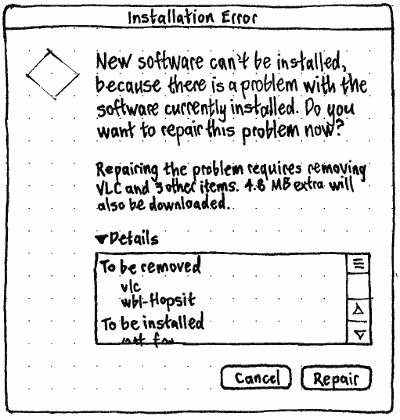 Installation Error
New software can't be installed,
because there is a problem with the
software currently installed. Do you
want to repair this problem now?
Repairing the problem requires removing
VLC and 3 other items. 4.6 MB extra will
also be downloaded.
Details
To be removed
vlc
wbl-flopsit
To be installed
Cancel Repair